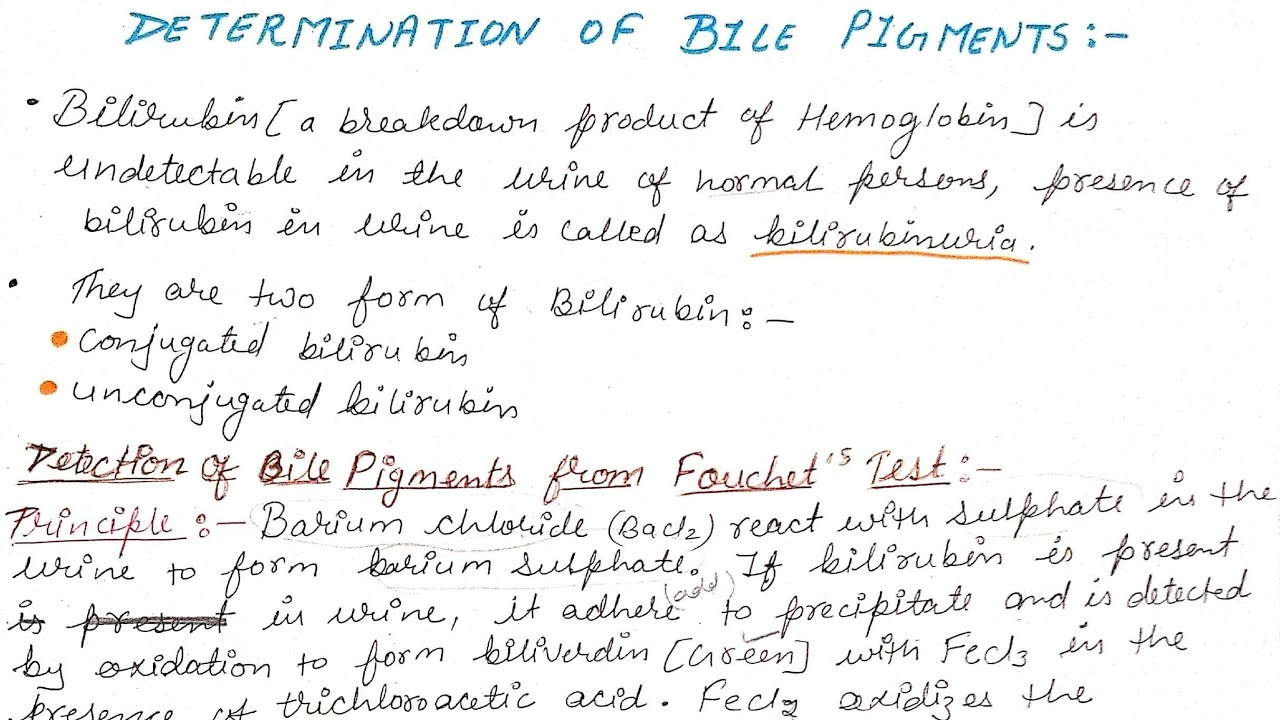 DETERMINATION OF BILE PIGMENTS:-
• Bilirubin [a breakdown product of Hemoglobin] is
undetectable in the urine of normal persons, presence of
bilirubin in urine is called as bilirubinuria.
• They are two form of Bilirubin:-
• conjugated bilirubin
• unconjugated bilirubin
Detection of Bile Pigments from Fouchet's Test:-
Principle:- Barium chloride (Bacl2) react with sulphate in the
urine to form barium sulphate. If bilirubin is present
is present in urine, it adhere (add) to precipitate and is detected
by oxidation to form biliverdin [Green] with Fecl3 in the
presence of trichloroacetic acid. Fecl3 oxidizes the